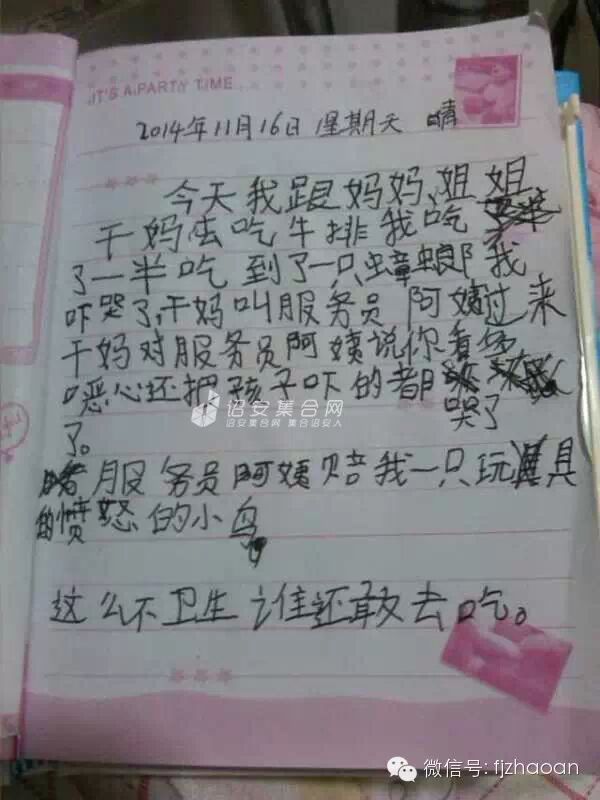 IT'S A PARTY TIME...
2014年11月16日 星期天 晴
今天我跟妈妈、姐姐
干妈去吃牛排我吃
了一半吃到了一只蟑螂我
吓哭了,干妈叫服务员阿姨过来
干妈对服务员阿姨说你看多
恶心还把孩子吓的都
哭了
了。
诏安集合网
诏安集合网 集合诏安人
服务员阿姨赔我一只玩具
的愤怒的小鸟
这么不卫生谁还敢去吃。
微信号: fjzhaoan